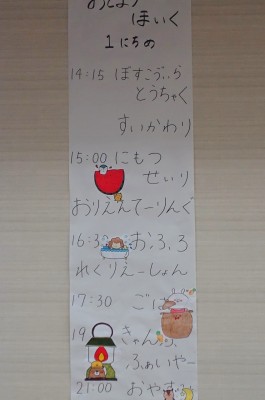 ほいく
1にちの
14:15 ぼすこゔぃら
とうちゃく
すいかわり
15:00 にもつ
せいり
おりえんてーりんぐ
16:3 おふろ
れくりえーしょん
17:30 ごは
19 きゃんぷ
ふぁいやー
21:00 おやすみ